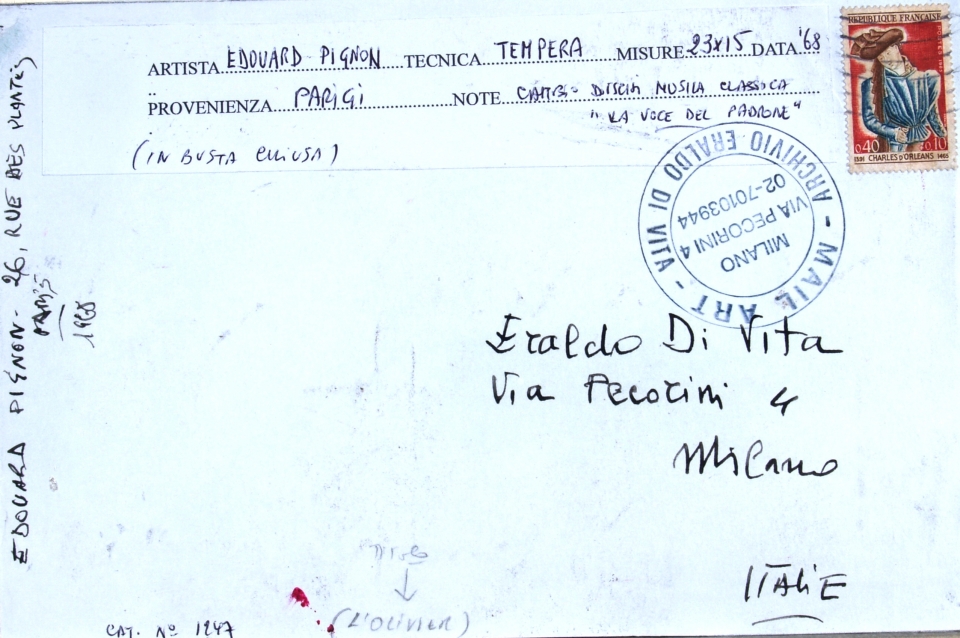 ARTISTA EDOUARD PIGNON TECNICA TEMPERA MISURE 23x15 DATA '68
PROVENIENZA PARIGI NOTE CAMBIO DISCHI MUSICA CLASSICA
"LA VOCE DEL PADRONE"
(IN BUSTA CHIUSA)
REPUBLIQUE FRANÇAISE
0.40 +0.10
1391 CHARLES D'ORLEANS 1465
ARCHIVIO ERALDO DI VITA - MAIL ART -
MILANO
VIA PECORINI 4
02-70103944
EDOUARD PIGNON - 26, RUE DES PLANTES
PARIS
1968
Eraldo Di Vita
Via Pecorini 4
Milano
ITALIE
(L'OLIVIER)
CAT. No 1247